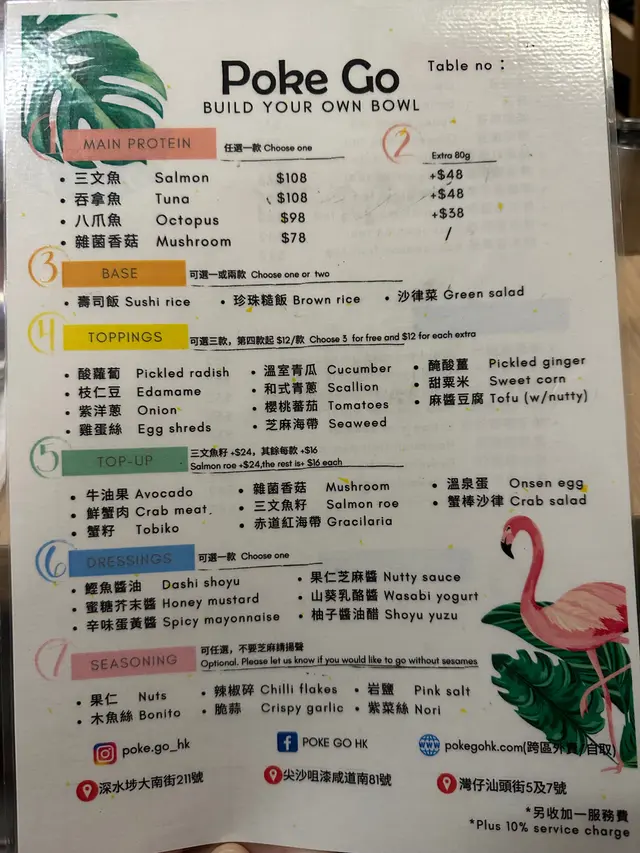 Poke Go
Table no：
BUILD YOUR OWN BOWL
1 MAIN PROTEIN 任選一款 Choose one
2 Extra 80g
三文魚 Salmon $108 +$48
吞拿魚 Tuna $108 +$48
八爪魚 Octopus $98 +$38
雜菌香菇 Mushroom $78 /
3 BASE 可選一或兩款 Choose one or two
壽司飯 Sushi rice 珍珠糙飯 Brown rice 沙律菜 Green salad
4 TOPPINGS 可選三款，第四款起 $12/款 Choose 3 for free and $12 for each extra
酸蘿蔔 Pickled radish 溫室青瓜 Cucumber 醃酸薑 Pickled ginger
枝仁豆 Edamame 和式青蔥 Scallion 甜粟米 Sweet corn
紫洋蔥 Onion 櫻桃蕃茄 Tomatoes 麻醬豆腐 Tofu (w/nutty)
雞蛋絲 Egg shreds 芝麻海帶 Seaweed
5 TOP-UP 三文魚籽 +$24，其餘每款 +$16
Salmon roe +$24,the rest is+ $16 each
牛油果 Avocado 雜菌香菇 Mushroom 溫泉蛋 Onsen egg
鮮蟹肉 Crab meat. 三文魚籽 Salmon roe 蟹棒沙律 Crab salad
蟹籽 Tobiko 赤道紅海帶 Gracilaria
6 DRESSINGS 可選一款 Choose one
鰹魚醬油 Dashi shoyu 果仁芝麻醬 Nutty sauce
蜜糖芥末醬 Honey mustard 山葵乳酪醬 Wasabi yogurt
辛味蛋黃醬 Spicy mayonnaise 柚子醬油醋 Shoyu yuzu
7 SEASONING 可任選，不要芝麻請揚聲
Optional. Please let us know if you would like to go without sesames
果仁 Nuts 辣椒碎 Chilli flakes 岩鹽 Pink salt
木魚絲 Bonito 脆蒜 Crispy garlic 紫菜絲 Nori
poke.go_hk POKE GO HK pokegohk.com(跨區外賣/自取)
深水埗大南街211號 尖沙咀漆咸道南81號 灣仔汕頭街5及7號
*另收加一服務費
*Plus 10% service charge